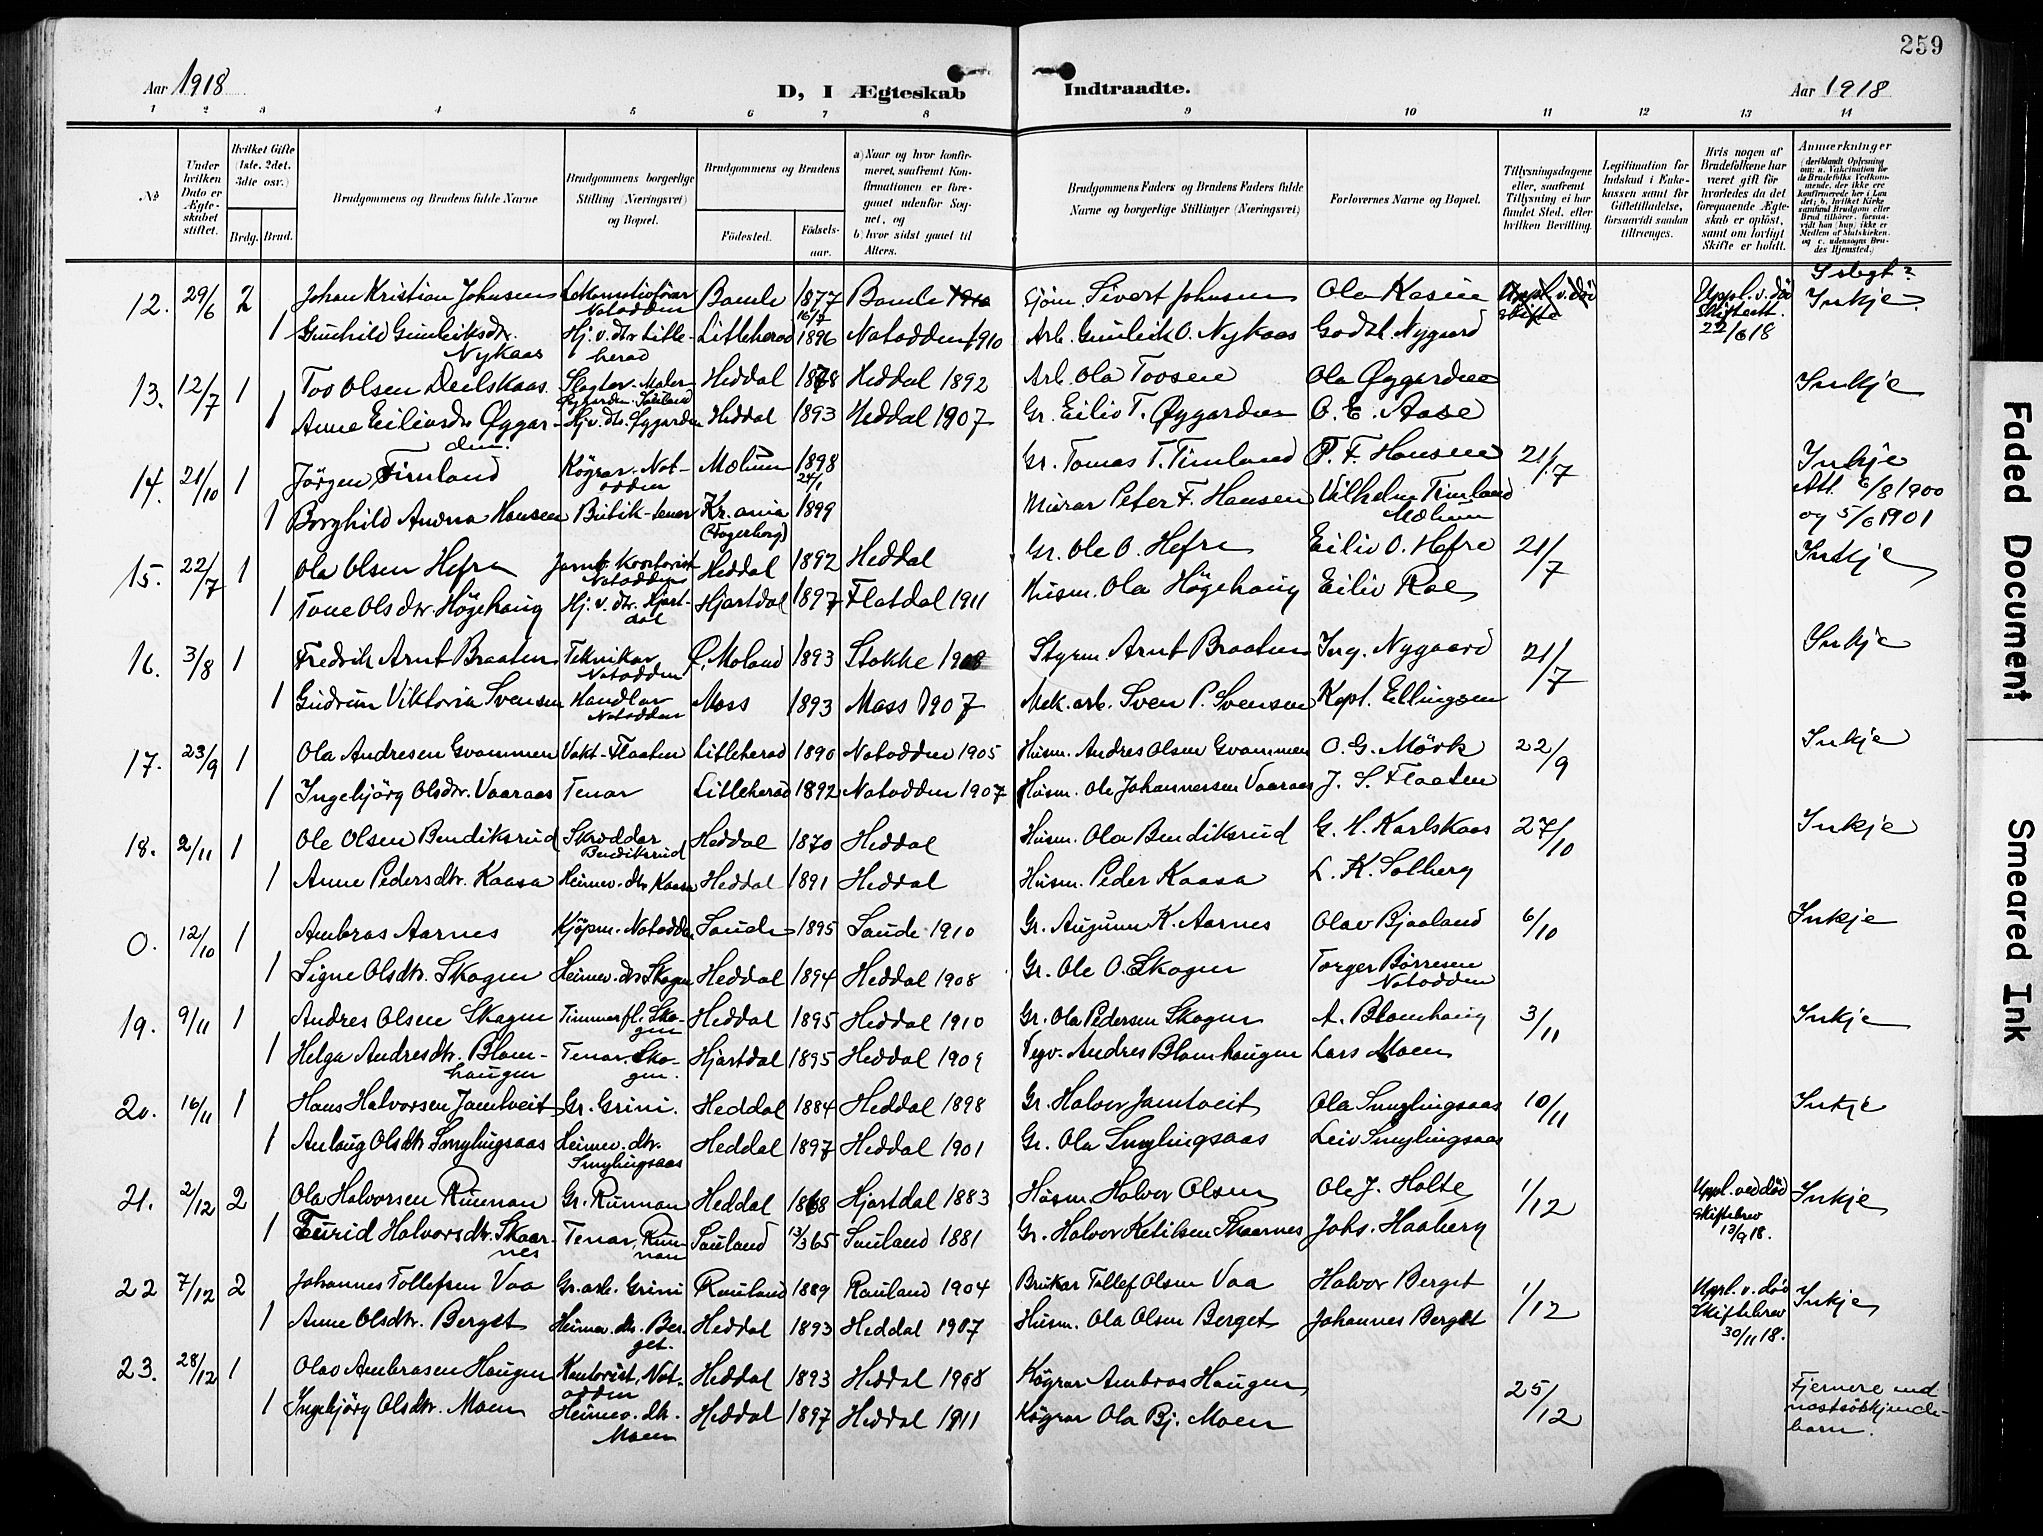 259
Aar 1918
D, I Ægteskab Indtraadte.
Aar 1918
1 2 3 4 5 6 7 8 9 10 11 12 13 14
No
Under hvilken Dato er Ægteskabet stiftet.
Hvilket Gifte (1ste. 2det. 3die osv.)
Brdg. Brud.
Brudgommens og Brudens fulde Navne
Brudgommens borgerlige Stilling (Næringsvei) og Bopæl.
Brudgommens og Brudens
Fødested.
Fødsels-aar.
a) Naar og hvor konfirmeret, saafremt Konfirmationen er foregaaet udenfor Sognet, og
b) hvor sidst gaaet til Alters.
Brudgommens Faders og Brudens Faders fulde Navne og borgerlige Stillinger (Næringsvei)
Forlovernes Navne og Bopæl.
Tillysningsdagene eller, saafremt Tillysning ei har fundet Sted, efter hvilken Bevilling.
Legitimation for Indskud i Enkekassen samt for Giftetilladelse, forsaavidt saadan tiltrænges.
Hvis nogen af Brudefolkene har været gift før hvorledes da det foregaaende Ægteskab er opløst, samt om lovligt Skifte er holdt.
Anmærkninger
12. 29/6 2 Johan Kristian Johnsen Lokomotivförar Notodden Bamle 1877 Bamle Gjöm. Sivert Johnsen Ola Kasin Uppl. v. död Skifteatt. 22/6 18 I slegt? Inkje
1 Gunhild Gunleiksdr. Nykaas Hj. v. dtr Litleherad Litleherad 16/7 1896 Notodden 1910 Arb. Gunleik O. Nykaas Godsk. Nygaard
13. 12/7 1 Tov Olsen Deilskaas Slagtar-Maler Heddal 1878 Heddal 1892 Arb. Ola Tovsen Ola Øygarden Inkje
1 Anne Eilivsdr. Øygarden. Hj. v. dtr. Øygarden Heddal 1893 Heddal 1907 Gr. Eiliv T. Øygarden O. E. Aase
14. 21/10 1 Jörgen Timland Kögrar. Notodden Mælum 1898 Gr. Tomas T. Timland P. F. Hansen 21/7 Inkje
1 Borghild Andrea Hansen Butik-tenar Kr.ania (Fagerborg) 24/1 1899 Murar Peter F. Hansen Vilhelm Timland Mælum Att. 6/8 1900 og 5/6 1901
15. 22/7 1 Ola Olsen Hefre Jernb. Kontorist Notodden Heddal 1892 Heddal Gr. Ole O. Hefre Eiliv O. Hefre 21/7 Inkje
1 Tone Olsdtr. Högehaug Hj. v. dtr. Hjartdal Hjartdal 1897 Flatdal 1911 Husm. Ola Högehaug Eiliv Roe
16. 3/8 1 Fredrik Arnt Braaten Teknikar Notodden Ø. Moland 1893 Stokke 1908 Styrm. Arnt Braaten Ing. Nygaard 21/7 Inkje
1 Gudrun Viktoria Svensen Handlar Notodden Moss 1893 Moss 1907 Mek. arb. Sven P. Svensen Kapt. Ellingsen
17. 23/9 1 Ola Andresen Gvammen Vakt-Flaaten Litleherad 1890 Notodden 1905 Husm. Andres Olsen Gvammen O. G. Mörk 22/9 Inkje
1 Ingebjörg Olsdtr. Vaaraas Tenar Litleherad 1892 Notodden 1907 Husm. Ole Johannersen Vaaraas J. S. Flaaten
18. 2/11 1 Ole Olsen Bendiksrud Skræddar Bendiksrud Heddal 1870 Heddal Husm. Ola Bendiksrud G. H. Karlskaas 27/10 Inkje
1 Anne Pedersdtr. Kaasa Heimev. dtr Kaasa Heddal 1891 Heddal Husm. Peder Kaasa L. K. Solberg
0. 12/10 1 Ambros Aarnes Kjöpm. Notodden Saude 1895 Saude 1910 Gr. Augunn K. Aarnes Olav Bjaaland 6/10 Inkje
1 Signe Olsdtr. Skogen Heimev. dtr Skogen Heddal 1894 Heddal 1908 Gr. Ole O. Skogen Torger Børresen Notodden
19. 9/11 1 Andres Olsen Skogen Timmerfl. Skogen Heddal 1895 Heddal 1910 Gr. Ola Pedersen Skogen A. Blomhaug 3/11 Inkje
1 Helga Andresdtr. Blomhaugen Tenar. Skogen. Hjartdal 1895 Heddal 1909 Vegv. Andres Blomhaugen Lars Moen
20. 16/11 1 Hans Halvorsen Jamtveit Gr. Grini. Heddal 1884 Heddal 1898 Gr. Halvor Jamtveit Ola Smylingsaas 10/11 Inkje
1 Anlaug Olsdtr Smylingsaas Heimev. dtr. Smylingsaas Heddal 1897 Heddal 1901 Gr. Ola Smylingsaas Leiv Smylingsaas
21. 2/12 2 Ola Halvorsen Runnan Gr. Runnan Heddal 1868 Hjartdal 1883 Husm. Halvor Olsen Ole J. Holte 1/12 Uppl. ved död Skiftebrev 13/9 18. Inkje
1 Turid Halvorsdtr. Skaarnes Tenar, Runnan Sauland 13/3 65 Sauland 1881 Gr. Halvor Ketilsen Skaarnes Johs. Haaberg
22 7/12 2 Johannes Tollefsen Vaa Gr. arb. Grini Rauland 1889 Rauland 1904 Brukar Tollef Olsen Vaa Halvor Berget 1/12 Uppl. v. död Skiftebrev 30/11 18. Inkje
1 Anne Olsdtr. Berget Heimev. dtr. Berget. Heddal 1893 Heddal 1907 Husm. Ola Olsen Berget Johannes Berget
23. 28/12 1 Olav Ambrosen Haugen Kontorist, Notodden Heddal 1893 Heddal 1908 Kögrar Ambros Haugen 25/12 Fjernere end næstsöskjendebarn.
1 Ingebjörg Olsdtr. Moen Heimev. dtr. Moen Heddal 1897 Heddal 1911 Kögrar Ola Bj. Moen
Faded Document
Smeared Ink